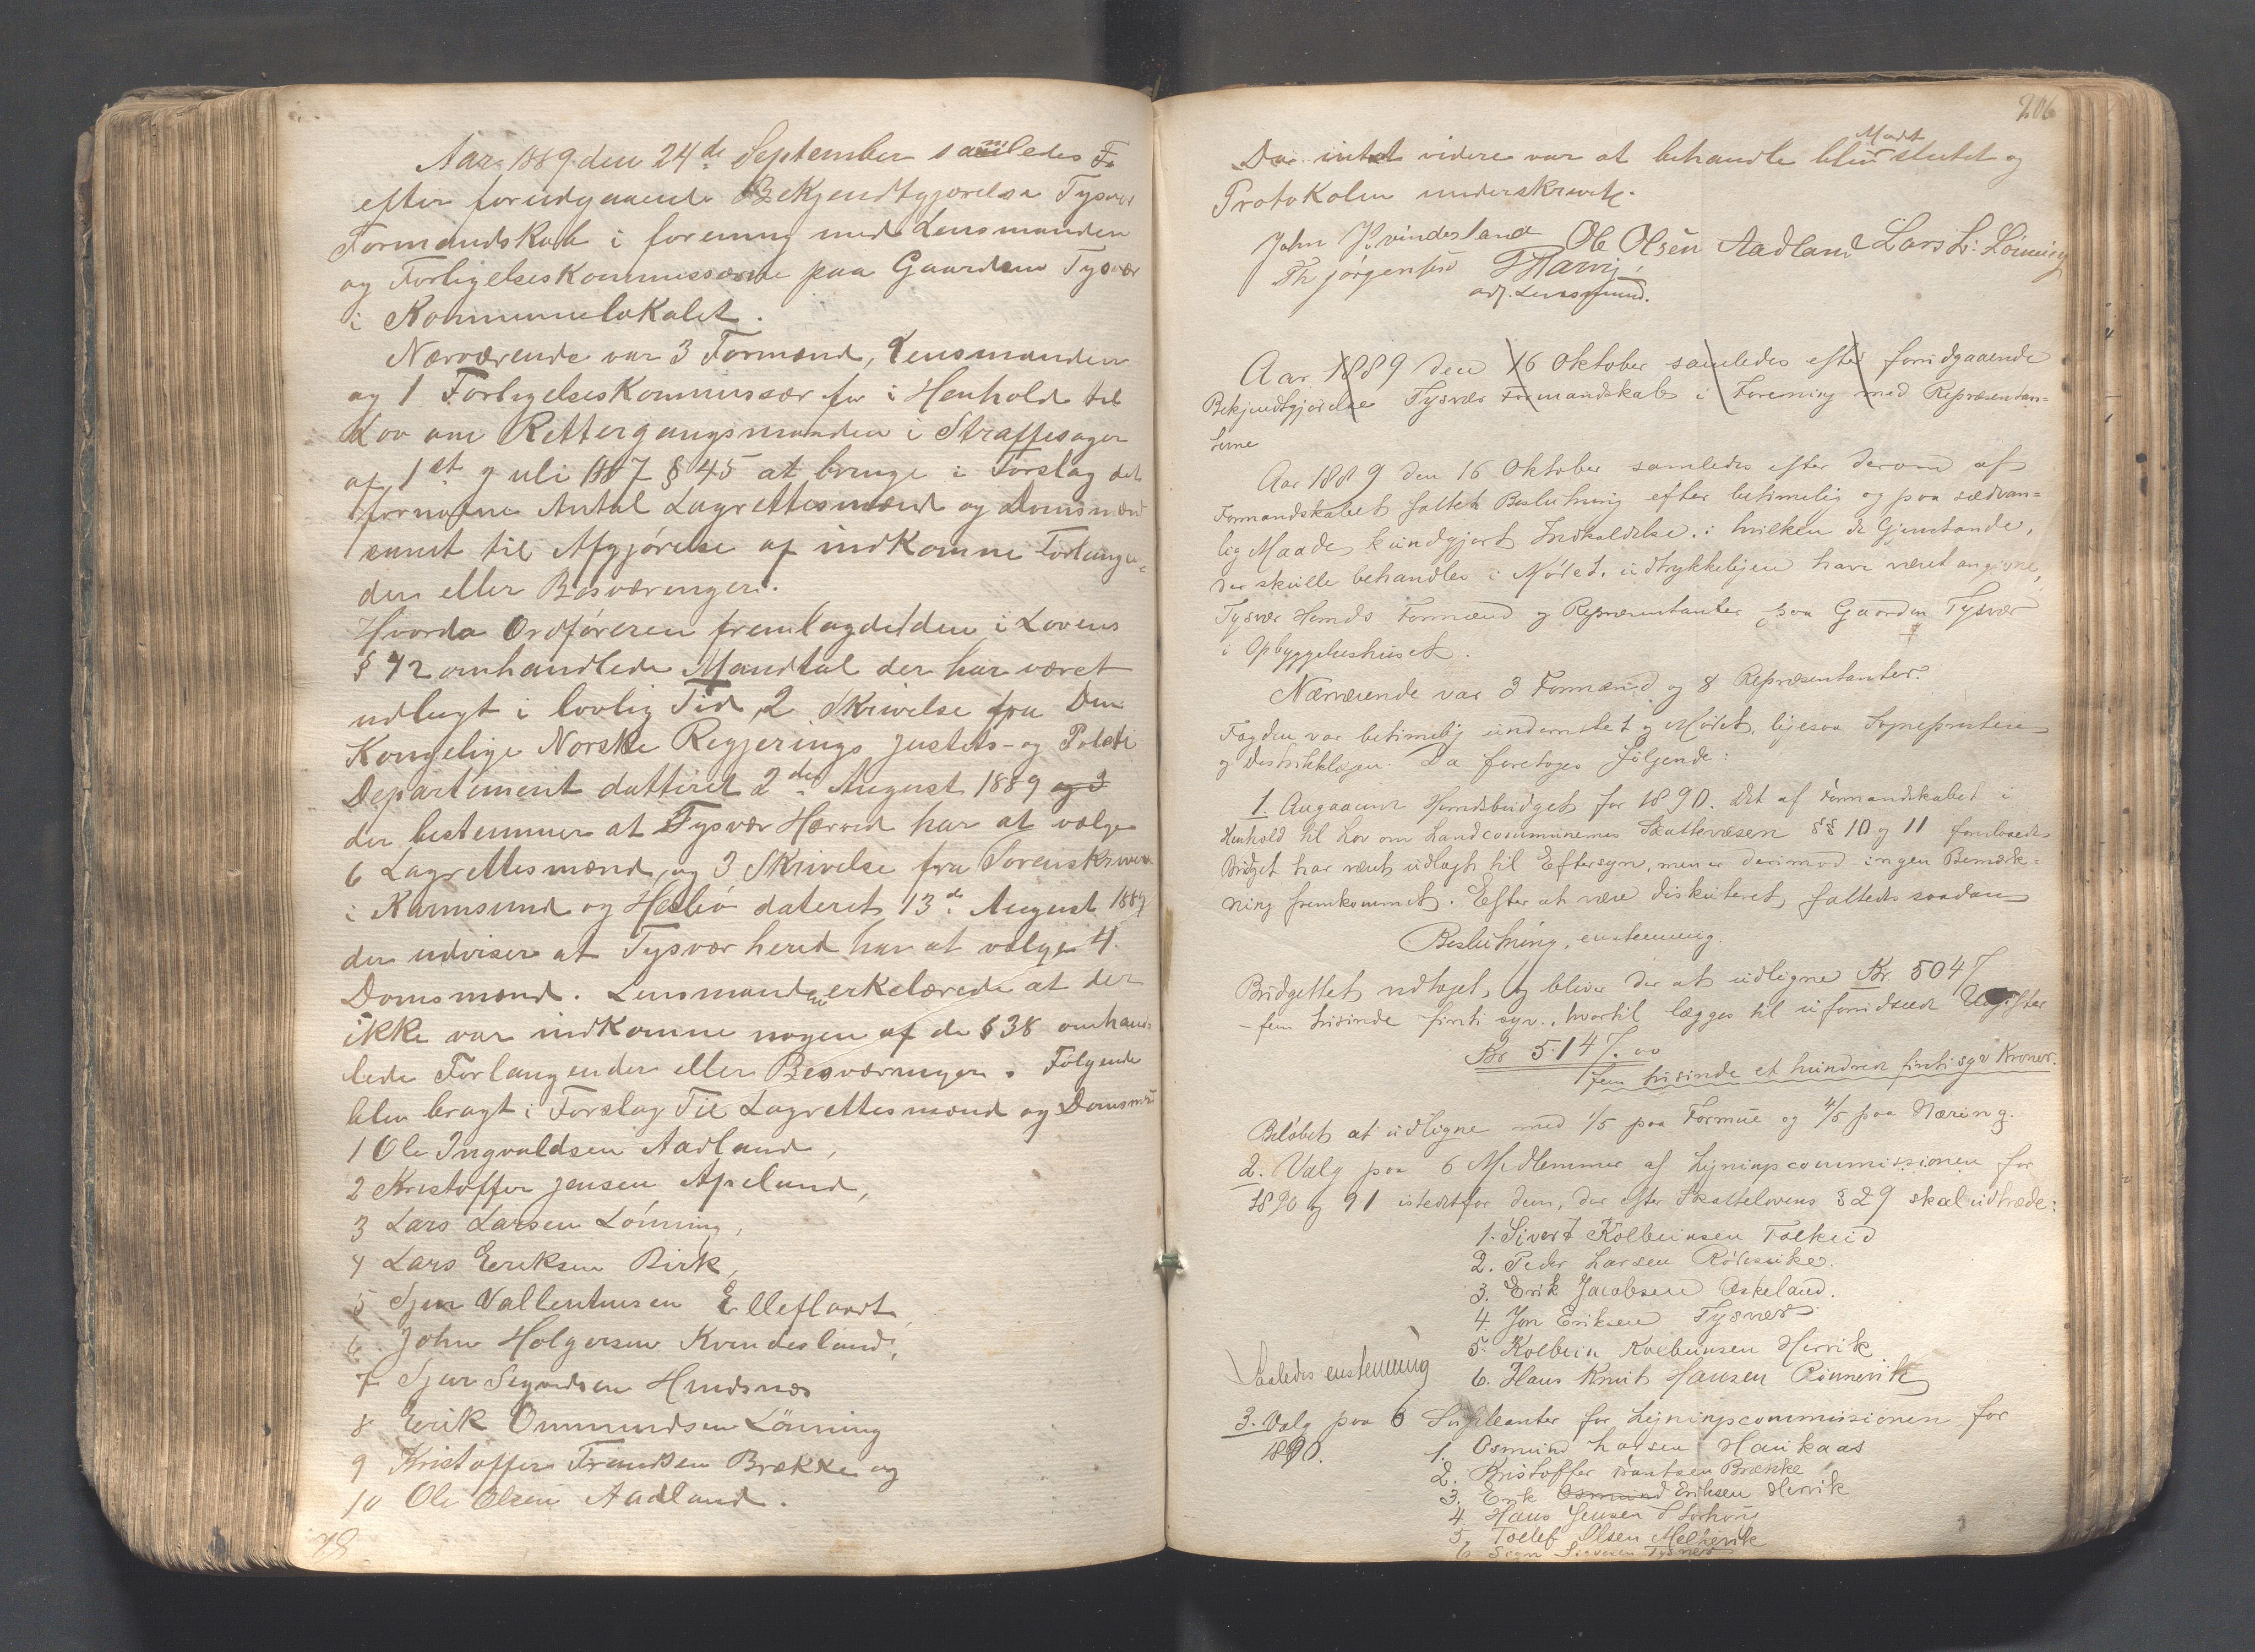 Aar 1889 den 24de September samledes Fo
efter forudgaaende Bekjendtgjørelse Tysvær
Formandskab i forening med Lensmanden
og Forligelseskommissærerne paa Gaarden Tysvær
i Kommunelokalet.
Nærværende var 3 Formænd, Lensmanden
og 1 Forligelseskommissær for i Henhold til
Lov om Rettergangsmaaden i Straffesager
af 1st Juli 1887 § 45 at bringe i Forslag det
fornødne Antal Lagrettesmænd og Domsmænd
samt til Afgjørelse af indkomne Forlangen-
der eller Besværinger.
Hvorda Ordføreren fremlagde den i Lovens
§ 42 omhandlede Mandtal der har været
udlagt i lovlig Tid, 2 Skrivelse fra Den
Kongelige Norske Regjerings Justits- og Politi
Departement datteret 2den August 1889 og 3
der bestemmer at Tysvær Herred har at vælge
6 Lagrettesmænd, og 3 Skrivelse fra Sorenskriveren
i Karmsund og Hesbø dateret 13de August 1889
der udviser at Tysvær herred har at vælge 4
Domsmænd. Lensmanden erkelærede at der
ikke var indkomne nogen af de § 38 omhand-
lede Forlangender eller Besværinger. Følgende
blev bragt i Forslag Til Lagrettesmænd og Domsmæn
1 Ole Ingvaldsen Aadland,
2 Kristoffer Jensen Apeland,
3 Lars Larsen Lønning,
4 Lars Eriksen Birk,
5 Sjur Vallentinsen Elleflaadt,
6 John Holgersen Kvindesland,
7 Sjur Sigurdsen Hindsnæs
8 Erik Ommundsen Lønning
9 Kristoffer Frandsen Brække og
10 Ole Olsen Aadland.
78
206
Da intet videre var at behandle blev Mødt sluttet og
Protokolen underskrivet.
John Kvindesland Ole Olsen Aadland Lars L. Lønning
Th Jørgensen
adj. Lensmand.
Aar 1889 den 16 Oktober samledes efter forudgaaende
Bekjendtgjørelse Tysvær Formandskab i Forening med Repræsentan=
terne
Aar 1889 den 16 Oktober samledes efter derom af
Formandskabet fattet Beslutning efter betimelig og paa sædvan=
lig Maade kundgjort Indkaldelse, i hvilken de Gjenstande,
der skulle behandles i Mødet, udtrykkeligen have været angivne,
Tysvær Herreds Formænd og Repræsentanter paa Gaarden Tysvær
i Opbyggelseshuset.
Nærværende var 3 Formænd og 8 Repræsentanter.
Fogden var betimelig underrettet og Mødet, ligesaa Sognepresten
og Distriktslægen. Da foretoges Følgende:
1. Angaaende Herredsbudget for 1890. Det af Formandskabet i
Henhold til Lov om Landcommunernes Skattevæsen §§ 10 og 11 foreslaaede
Budget har været udlagt til Eftersyn, men er derimod ingen Bemærk=
ning fremkommet. Efter at være diskuteret fattedes saadan
Beslutning, enstemmig.
Budgettet vedtaget, og bliver der at udligne Kr 5047
- fem tusinde firti syv., hvortil lægges til uforudseede Udgifter
Kr 5147.00
fem tusinde et hundrede firti syv Kroner.
Beløbet at udligne med 1/5 paa Formue og 4/5 paa Næring.
2. Valg paa 6 Medlemmer af Ligningscommissionen for
1890 og 91 istedetfor dem, der efter Skattelovens § 29 skal udtræde:
1. Sivert Kolbeinsen Falkeid
2. Peder Larsen Rødsvike.
3. Erik Jacobsen Askeland.
4. Jon Eriksen Tysvær
5. Kolbein Kolbeinsen Hervik
6. Hans Knut Hansen Rønnevik
Saaledes enstemmig
3. Valg paa 6 Supleanter for Ligningscommissionen for
1890.
1. Osmund Larsen Haukaas
2. Kristoffer Frantsen Brække
3. Erik Osmund Eriksen Hervik
4. Hans Jensen Storhaug
5. Tollef Olsen Melkevik
6 Sigurdsen Tysvær